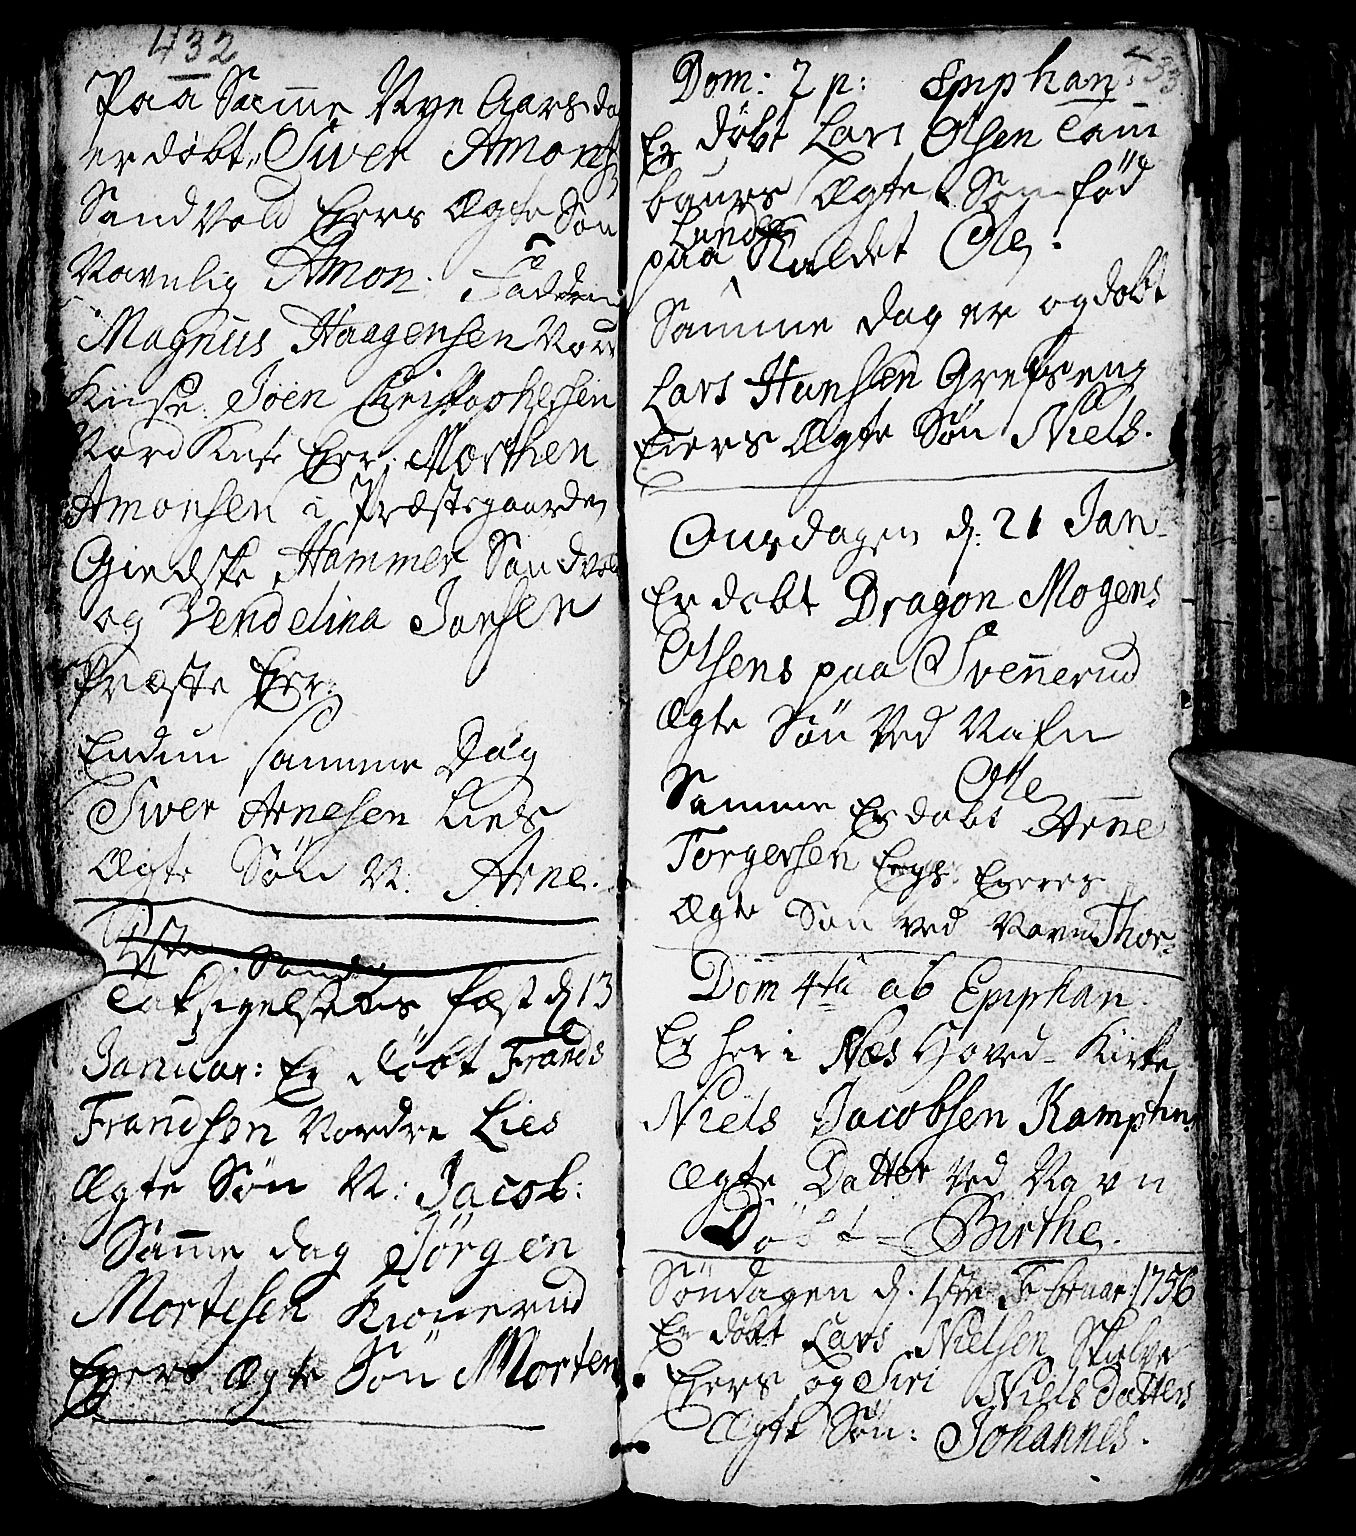 432
Paa Samme Nye Aars da
er døbt, Siver Amons
Sandvold Eiers Ægte Søn
Navnlig Amon. Fadderne
Magnus Haagensen Nord
Kiise. Joen Christophersen
Nord Kise Eier. Morthen
Amonsen i Præstegaarden
Giedske Hammer Sandvold
og Vendelina Jansen
Præste Eier.
Endnu samme Dag
Siver Arnesen Lies
Ægte Søn N. Arne.
Taksigelsens fæst d 13
Januar: Er døbt Frands
Frandsen Nordre Lies
Ægte Søn N: Jacob:
Samme dag Jørgen
Mortesen Kronerud
Eyers Ægte Søn Morten
433
Dom: 2 p: Epiphan:
Er døbt Lars Olsen Tam
baurs Ægte Søn fød
paa Landet Kaldet Ole.
Samme dag er og døbt
Lars Hansen Grefseng
Eiers Ægte Søn Niels.
Onsdagen d: 21 Jan
Er døbt Dragon Mogens
Olsens paa Svennerud
Ægte Søn Ved Nafn
Ole
Samme Er døbt Arne
Torgersen Engs Eyeres
Ægte Søn ved Navn Thor
Dom 4ta ab Epiphan.
Er her i Næs Hoved-Kirke
Niels Jacobsen Kamphn
Ægte Datter Ved Navn
Døbt - Birthe.
Søndagen d. 1ste Februar: 1756
Er døbt Lars Nielsen Skielve
Eiers og Siri Niels Datters
Ægte Søn: Johannes.